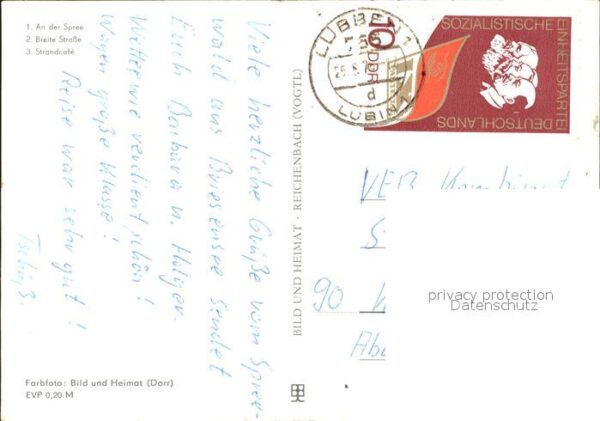 1. An der Spree
2. Breite Straße
3. Strandcafé
Viele herzliche Grüße vom Spree-
wald aus Briesensee sendet
Euch Barbara u. Holger.
Wetter wie verdient, schön!
Wagen große Klasse!
Reise war sehr gut!
Tschüß.
BILD UND HEIMAT · REICHENBACH (VOGTL)
Farbfoto: Bild und Heimat (Darr)
EVP 0,20 M
LÜBBEN 1
756
d
LUBIN 1
10
DDR
SOZIALISTISCHE
EINHEITSPARTEI
DEUTSCHLANDS
VEB Kombinat
90
privacy protection
Datenschutz